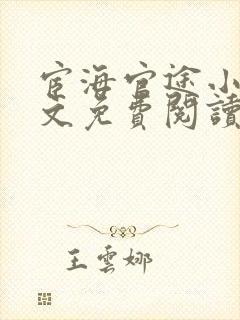 宦海官途小
文免費閱讀
王雲娜